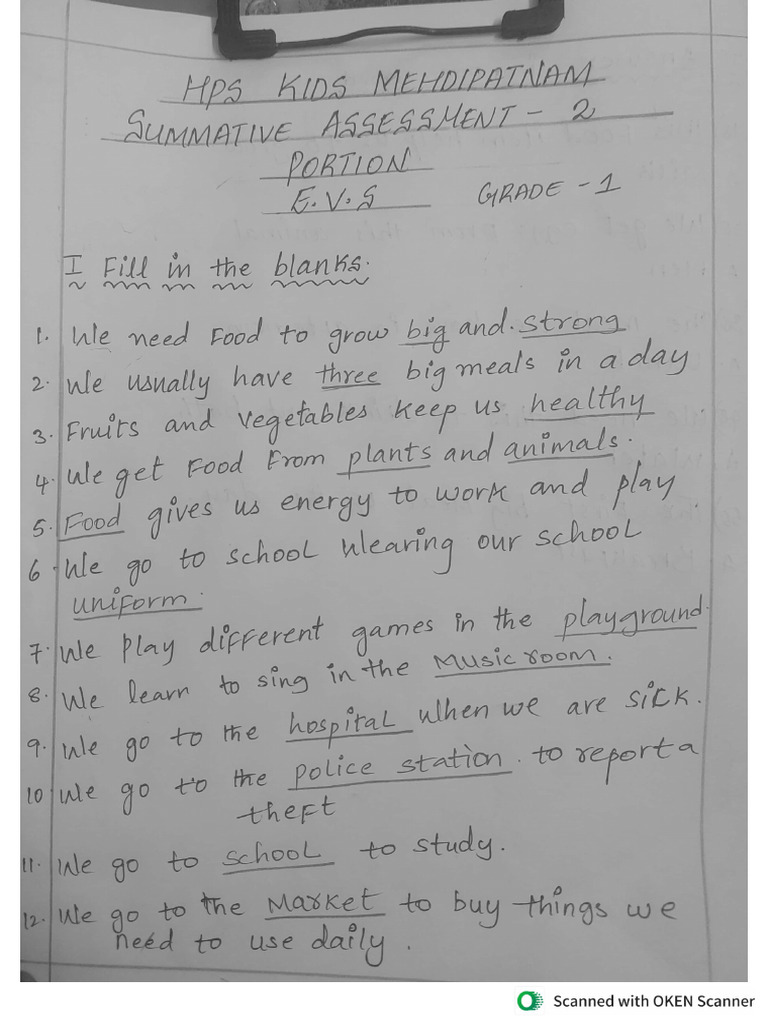 HPS KIDS MEHDIPATNAM
SUMMATIVE ASSESSMENT - 2
PORTION
E.V.S GRADE - 1
I Fill in the blanks.
1. We need Food to grow big and. strong
2. We usually have three big meals in a day
3. Fruits and vegetables keep us healthy
4. We get Food From plants and animals.
5. Food gives us energy to work and play
6. We go to school wearing our school
uniform.
7. We play different games in the playground.
8. We learn to sing in the Music room.
9. We go to the hospital when we are sick.
10 We go to the police station. to report a
theft
11. We go to school to study.
12. We go to the Market to buy things we
need to use daily.
Scanned with OKEN Scanner